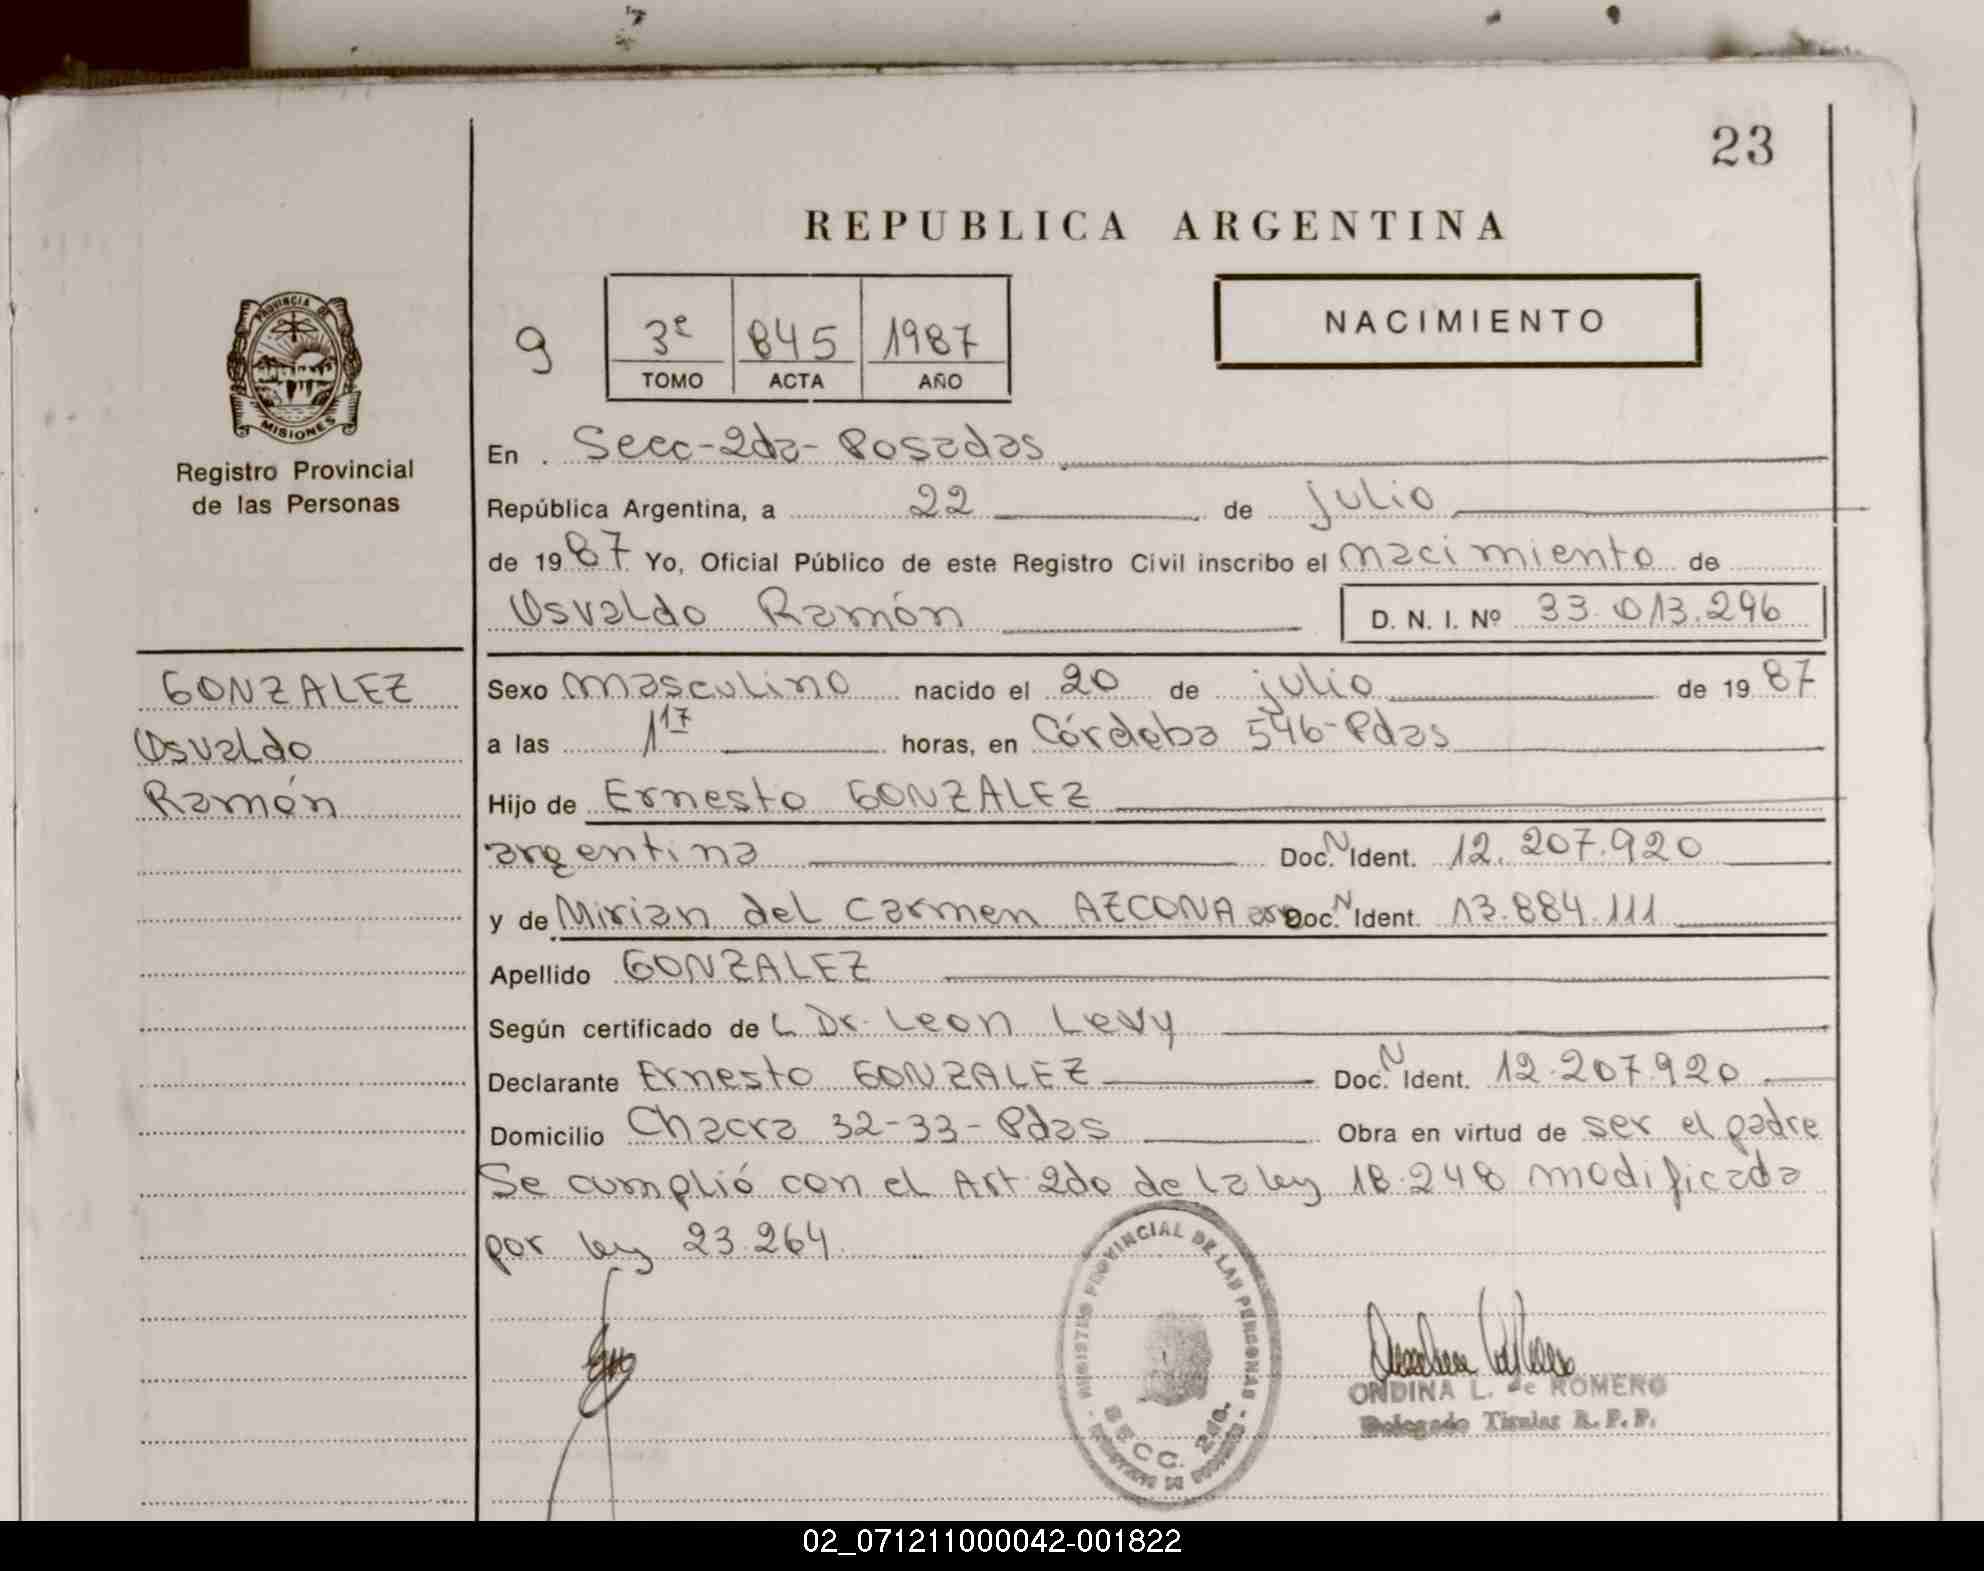 23
REPUBLICA ARGENTINA
PROVINCIA DE
MISIONES
Registro Provincial
de las Personas
9
3º 845 1987
TOMO ACTA AÑO
NACIMIENTO
En Secc-2da-Posadas
República Argentina, a 22 de julio
de 1987 Yo, Oficial Público de este Registro Civil inscribo el nacimiento de
Osvaldo Ramón D. N. I. Nº 33.013.296
GONZALEZ
Osvaldo
Ramón
Sexo masculino nacido el 20 de julio de 1987
a las 1 17 horas, en Córdoba 546-Pdas
Hijo de Ernesto GONZALEZ
argentina Doc. N Ident. 12.207.920
y de Mirian del Carmen AZCONA arg Doc. N Ident. 13.884.111
Apellido GONZALEZ
Según certificado de L. Dr. Leon Levy
Declarante Ernesto GONZALEZ Doc. N Ident. 12.207.920
Domicilio Chacra 32-33-Pdas Obra en virtud de ser el padre
Se cumplió con el Art. 2do de la ley 18.248 modificada
por ley 23.264.
PROVINCIAL DE LAS PERSONAS
SECC. 2da.
ONDINA L. de ROMERO
Delegado Titular R. P. P.
02_071211000042-001822